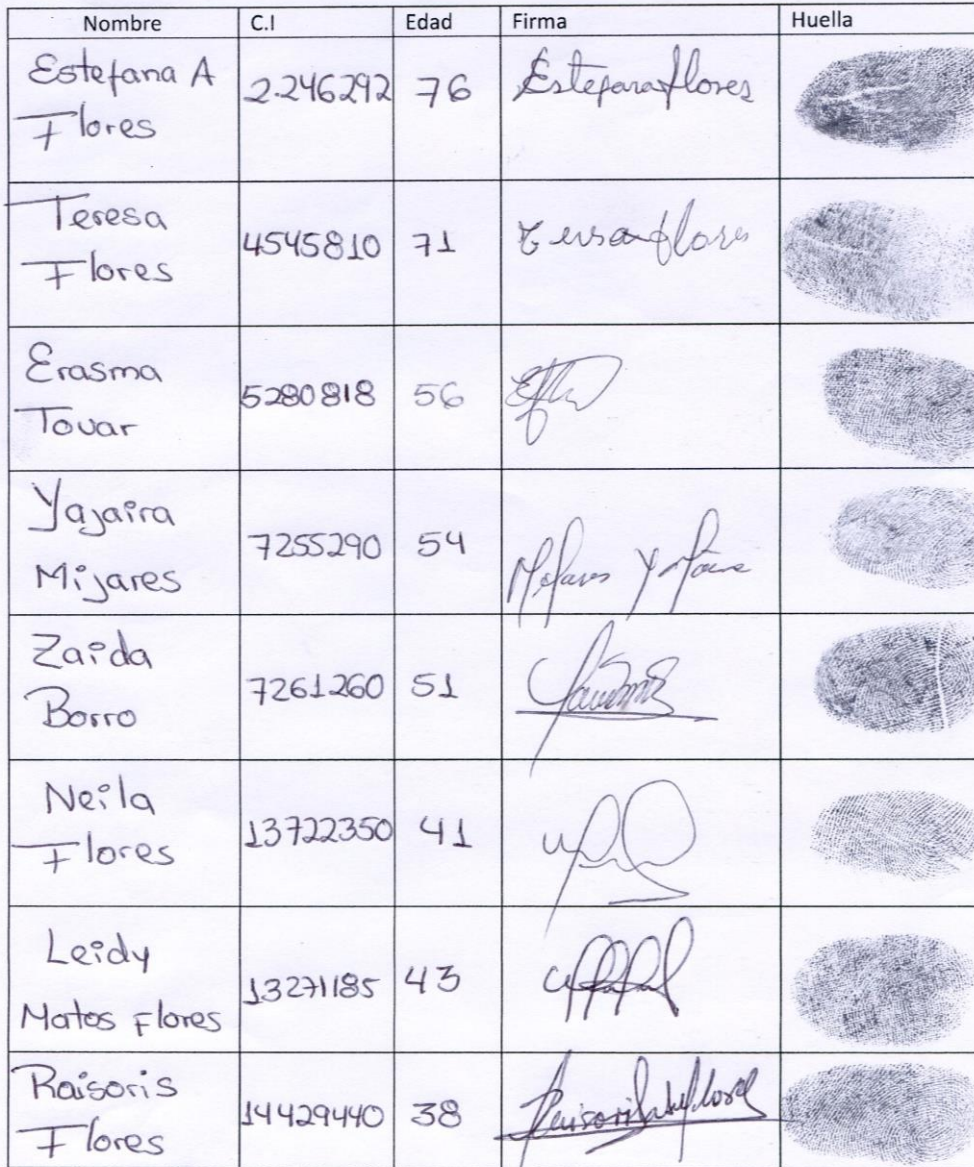 Nombre C.I Edad Firma Huella
Estefana A
Flores
2.246292 76 Estefana flores
Teresa
Flores
4545810 71 Teresa flores
Erasma
Tovar
5280818 56
Yajaira
Mijares
7255290 54 Mijares Yajaira
Zaida
Borro
7261260 51
Neila
Flores
13722350 41
Leidy
Matos Flores
13271185 43
Raisoris
Flores
14429440 38